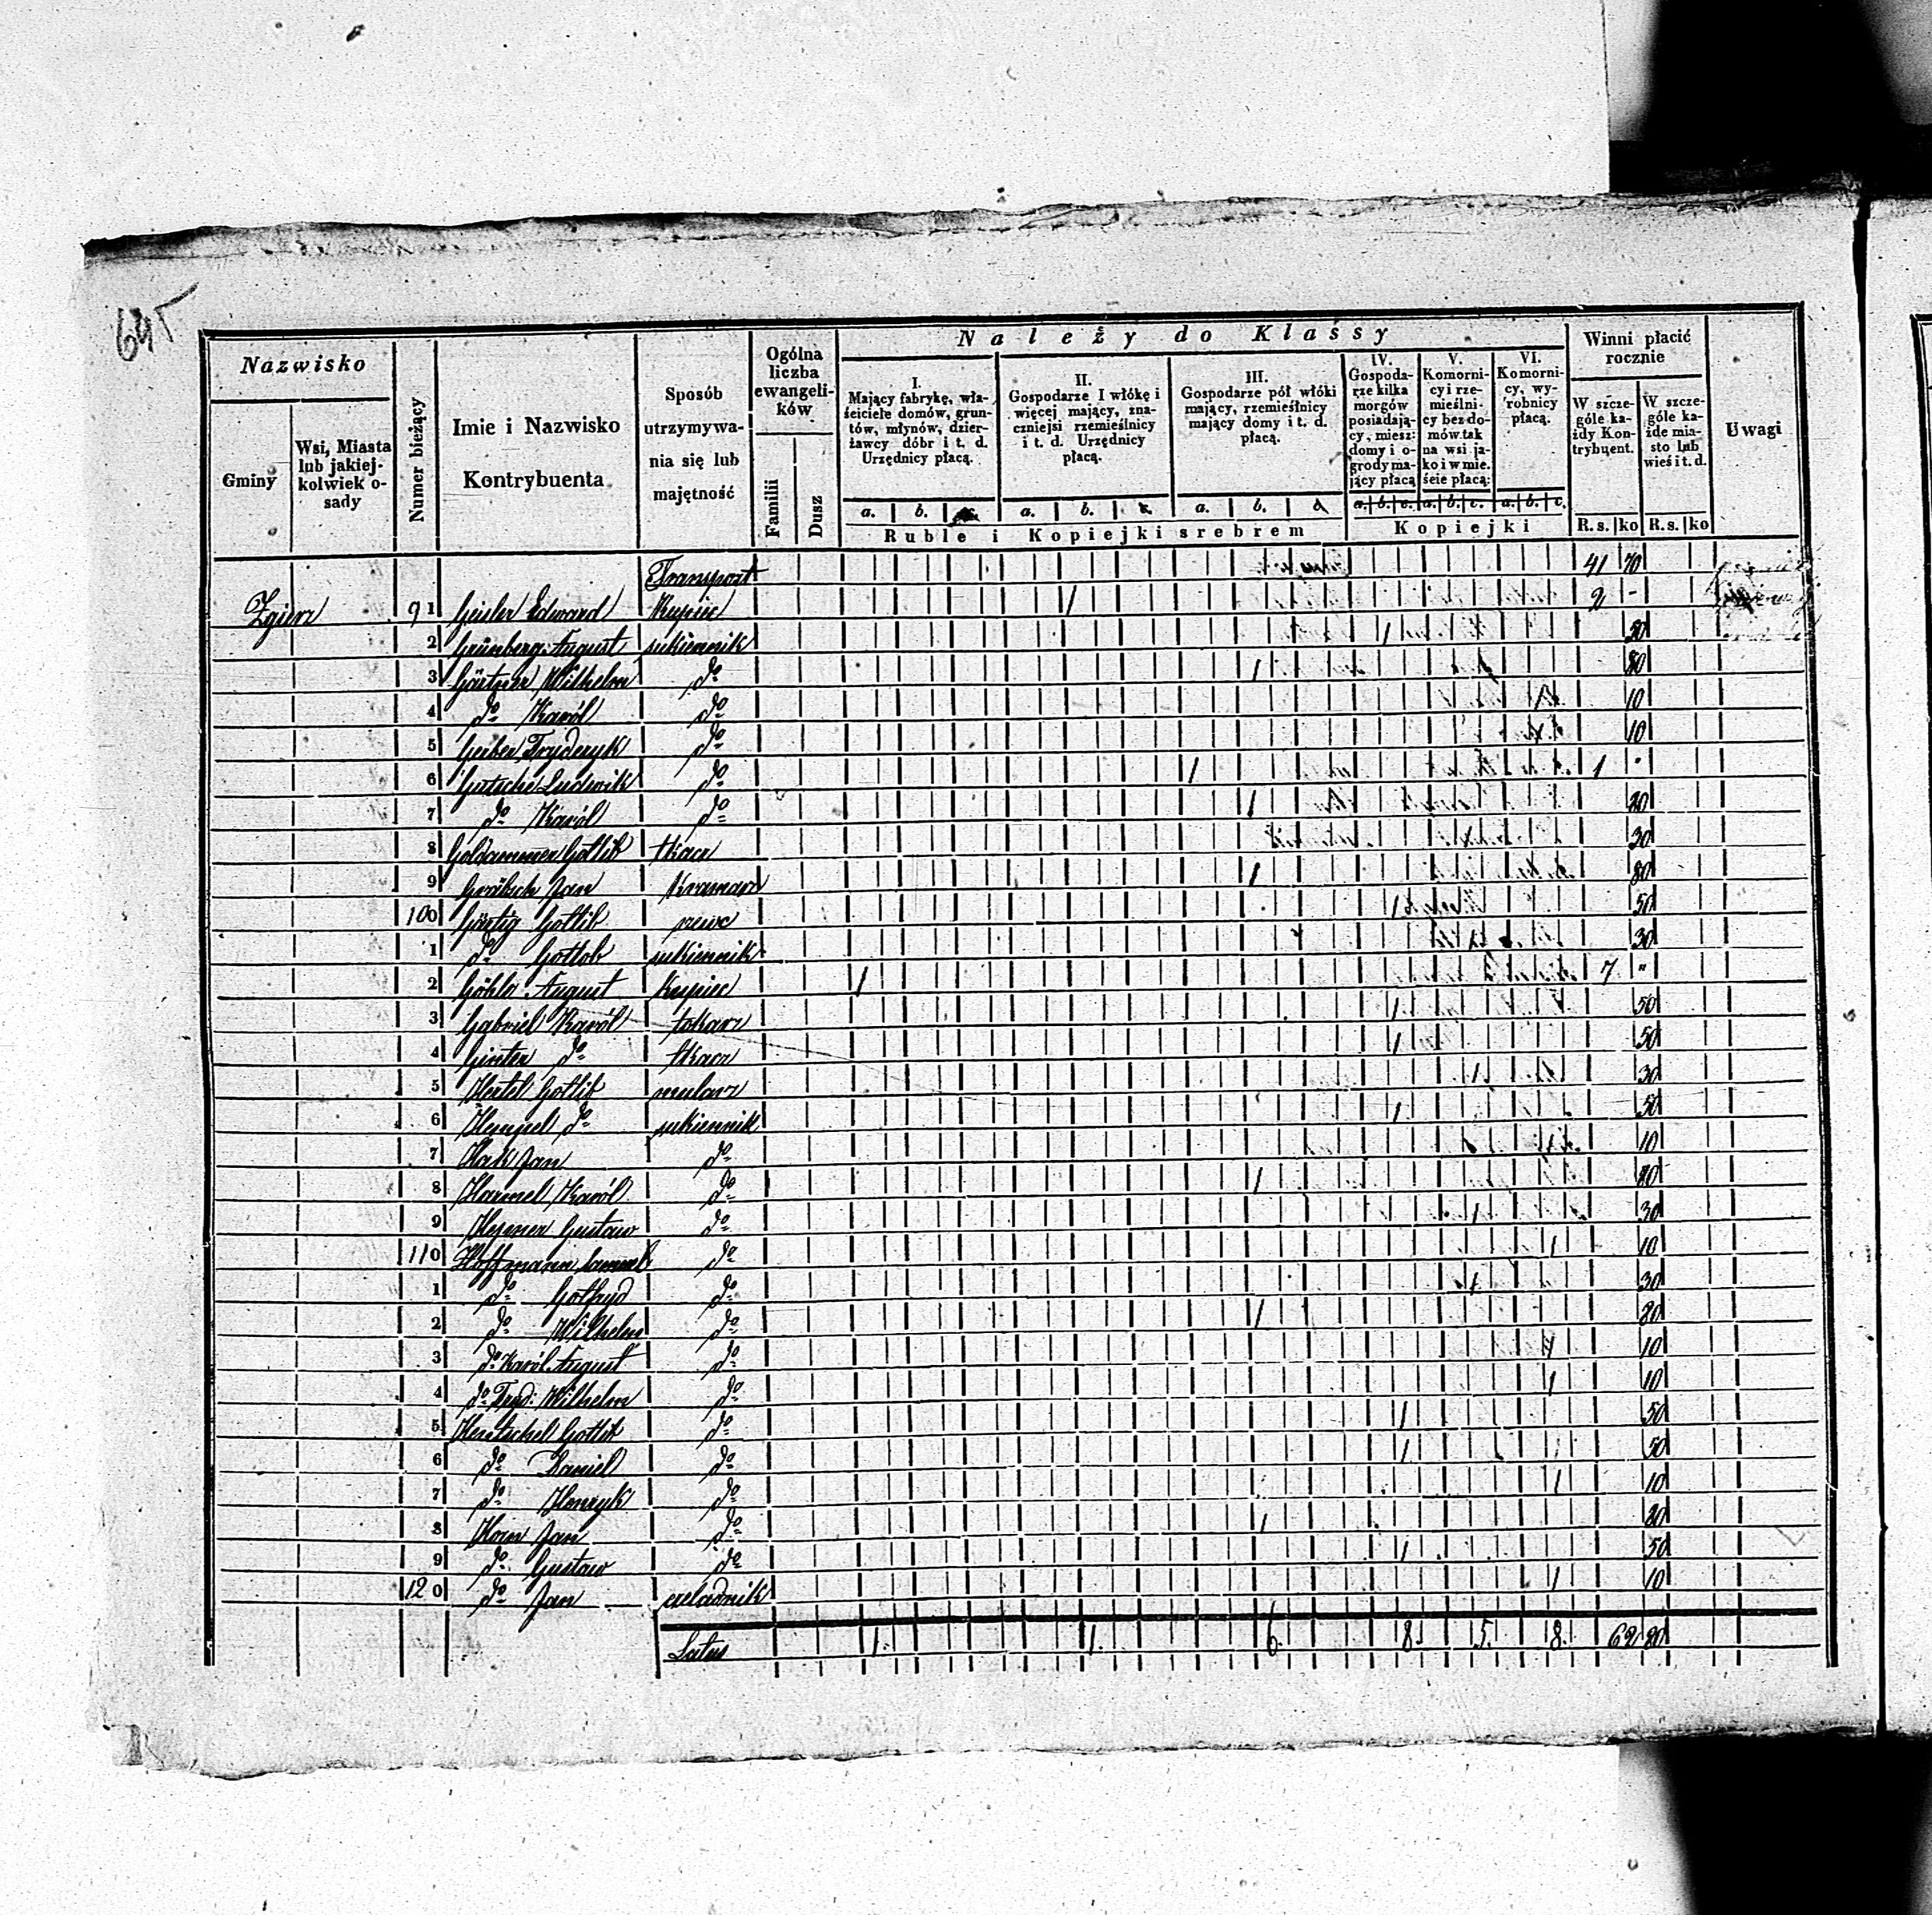 695
Należy do Klassy
Nazwisko
Gminy
Wsi, Miasta lub jakiej-kolwiek o-sady
Numer bieżący
Imie i Nazwisko Kontrybuenta
Sposób utrzymywa-nia się lub majętność
Ogólna liczba ewangeli-ków
Familii
Dusz
I. Mający fabrykę, wła-ściciele domów, grun-tów, młynów, dzier-żawcy dóbr i t. d. Urzędnicy płacą.
II. Gospodarze I włókę i więcej mający, zna-czniejsi rzemieślnicy i t. d. Urzędnicy płacą.
III. Gospodarze pół włóki mający, rzemieślnicy mający domy i t. d. płacą.
IV. Gospoda-rze kilka morgów posiadają-cy, miesz: domy i o-grody ma-jący płacą
V. Komorni-cy i rze-mieślni-cy bez do-mów tak na wsi ja-ko i w mie. ście płacą:
VI. Komorni-cy, wy-robnicy płacą.
Winni płacić rocznie
W szcze-góle ka-żdy Kon-trybuent.
W szcze-góle ka-żde mia-sto lub wieś i t. d.
Uwagi
a. b. a. b. a. b. a. b. c. a. b. c. a. b. c.
Ruble i Kopiejki srebrem
Kopiejki
R. s. ko R. s. ko
Transport 41 70
Zgierz 91 Geisler Edward Kupiec 1 2 -
2 Grünberg August sukiennik 1 50
3 Gärtner Wilhelm do 1 80
4 do Karól do 1 10
5 Gerber Fryderyk do 1 10
6 Gutsche Ludwik do 1 1 -
7 do Karól do 1 80
8 Goldammer Gotlib tkacz 1 30
9 Gräbsch Jan Kramarz 1 80
100 Gärtig Gotlib szewc 1 50
1 do Gotlob sukiennik 1 30
2 Göhla August Kupiec 1 7 "
3 Gabriel Karól tokarz 1 50
4 Ginter do tkacz 1 50
5 Hertel Gotlib mularz 1 30
6 Hempel do sukiennik 1 50
7 Hak Jan do 1 10
8 Harmel Karól do 1 80
9 Gustaw do 1 30
110 Hoffmann Samuel do 1 10
1 do Gotfryd do 1 30
2 do Wilhelm do 1 80
3 do Karól August do 1 10
4 do Fryd: Wilhelm do 1 10
5 Hentschel Gotlib do 1 50
6 do Daniel do 1 50
7 do Henryk do 1 10
8 Horn Jan do 1 80
9 do Gustaw do 1 50
120 do Jan czeladnik 1 10
Latus 1. 1. 6. 8. 5. 8. 62 80